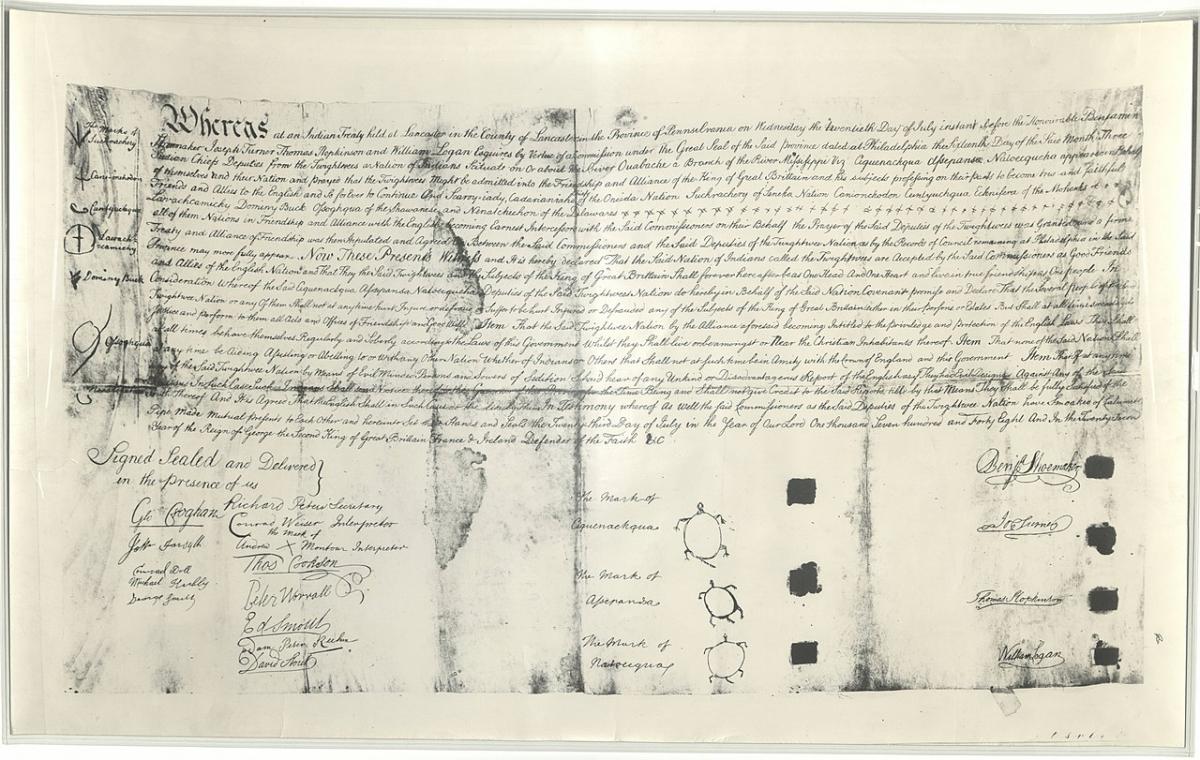 The Marks of
Suchrachery
Canionochdon
Cunlyuchqua
Larrach
camichy
Dominy Buck
Ossoghqua
Whereas at an Indian Treaty held at Lancaster in the County of Lancaster in the Province of Pennsylvania on Wednesday the twentieth Day of July instant Before the Honourable Benjamin
Shoemaker Joseph Turner Thomas Hopkinson and William Logan Esquires by Vertue of a Commission under the Great Seal of the Said Province dated at Philadelphia the Sixteenth Day of the Said Month Three
Indian Chiefs Deputies from the Twightwees a Nation of Indians Scituate on or about the River Ouabache a Branch of the River Missisippi Viz Aquenackqua Assepansa Natoecqueha appeared in behalf
of themselves and their Nation and prayed that the Twightwees Might be admitted into the Friendship and Alliance of the King of Great Brittain and his subjects professing on their part to become true and faithful
Friends and Allies to the English and So forever to Continue And Scarroyiady Cadarianiaha of the Oneida Nation Suchrachery of Seneka Nation Canionochdon Cunlyuchqua of the Mohawks
Larrachcamichy Dominy Buck Ossoghqua of the Shawanese and Nenatcheehon of the Delawares
all of them Nations in Friendship and Alliance with the English becoming Earnest Intercessors with the Said Commissioners on their Behalf the Prayer of the Said Deputies of the Twightwees was Granted and a firm
Treaty and Alliance of Friendship was then Stipulated and Agreed on Between the Said Commissioners and the Said Deputies of the Twightwee Nation as by the Records of Council remaining at Philadelphia in the Said
Province may more fully appear Now These Presents Witness and it is hereby declared That the Said Nation of Indians called the Twightwees are Accepted by the Said Commissioners as Good Friends
and Allies of the English Nation and that They the Said Twightwees and the Subjects of the King of Great Brittain Shall forever hereafter be as One Head and One Heart and live in true friendship as One people In
Consideration Whereof the Said Aquenackqua Assapansa Natoecqueha Deputies of the Said Twightwees Nation do hereby in Behalf of the Said Nation Covenant promise and Declare That the Several People of the Said
Twightwee Nation or any of them Shall not at any time hurt Injure or defraud or Suffer to be hurt Injured or Defrauded any of the Subjects of the King of Great Brittain Either in their Persons or Estates But Shall at all times
Justice and Perform to them all Acts and Offices of Friendship and Good Will Item That the Said Twightwee Nation by the Alliance aforesaid becoming Intitled to the priviledge and protection of the English Laws They Shall
at all times behave themselves Regularly and Soberly according to the Laws of this Government Whilst they Shall live or be amongst or Near the Christian Inhabitants thereof Item That none of the Said Nation Shall
at any time be Aiding Assisting or Abetting to or With any Other Nation Whether of Indians or Others that Shall not at Such time be in Amity with the Crown of England and this Government Item That If at any time
of the Said Twightwee Nation by Means of Evil Minded Persons and Sowers of Sedition Should hear of any Unkind or Disadvantageous Report of the English as if They had Evil Designs Against Any of the Said
Shall not give Credit to the Said Reports till by that Means They Shall be fully Satisfied of the
In Testimony whereof As well the said Commissioners as the Said Deputies of the Twightwee Nation have Smoaked the Calumet
Pipe Made Mutual Presents to Each Other and hereunto Set their Hands and Seals the Twenty third Day of July in the Year of Our Lord One thousand Seven hundred and Forty Eight And In the Twenty Second
Year of the Reign of George the Second King of Great Brittain France & Ireland Defender of the Faith &C
Signed Sealed and Delivered
in the Presence of us
Geo Croghan
Richard Peters Secretary
Conrad Weiser Interpreter
the Mark of
Andrew X Montour Interpreter
Thos Cookson
Peter Worrall
Ed Smout
David Stout
Conrad Doll
The Mark of
Aquenackqua
The Mark of
Assepansa
The Mark of
Natoecqua
Benjn Shoemaker
Jos Turner
Thomas Hopkinson
William Logan